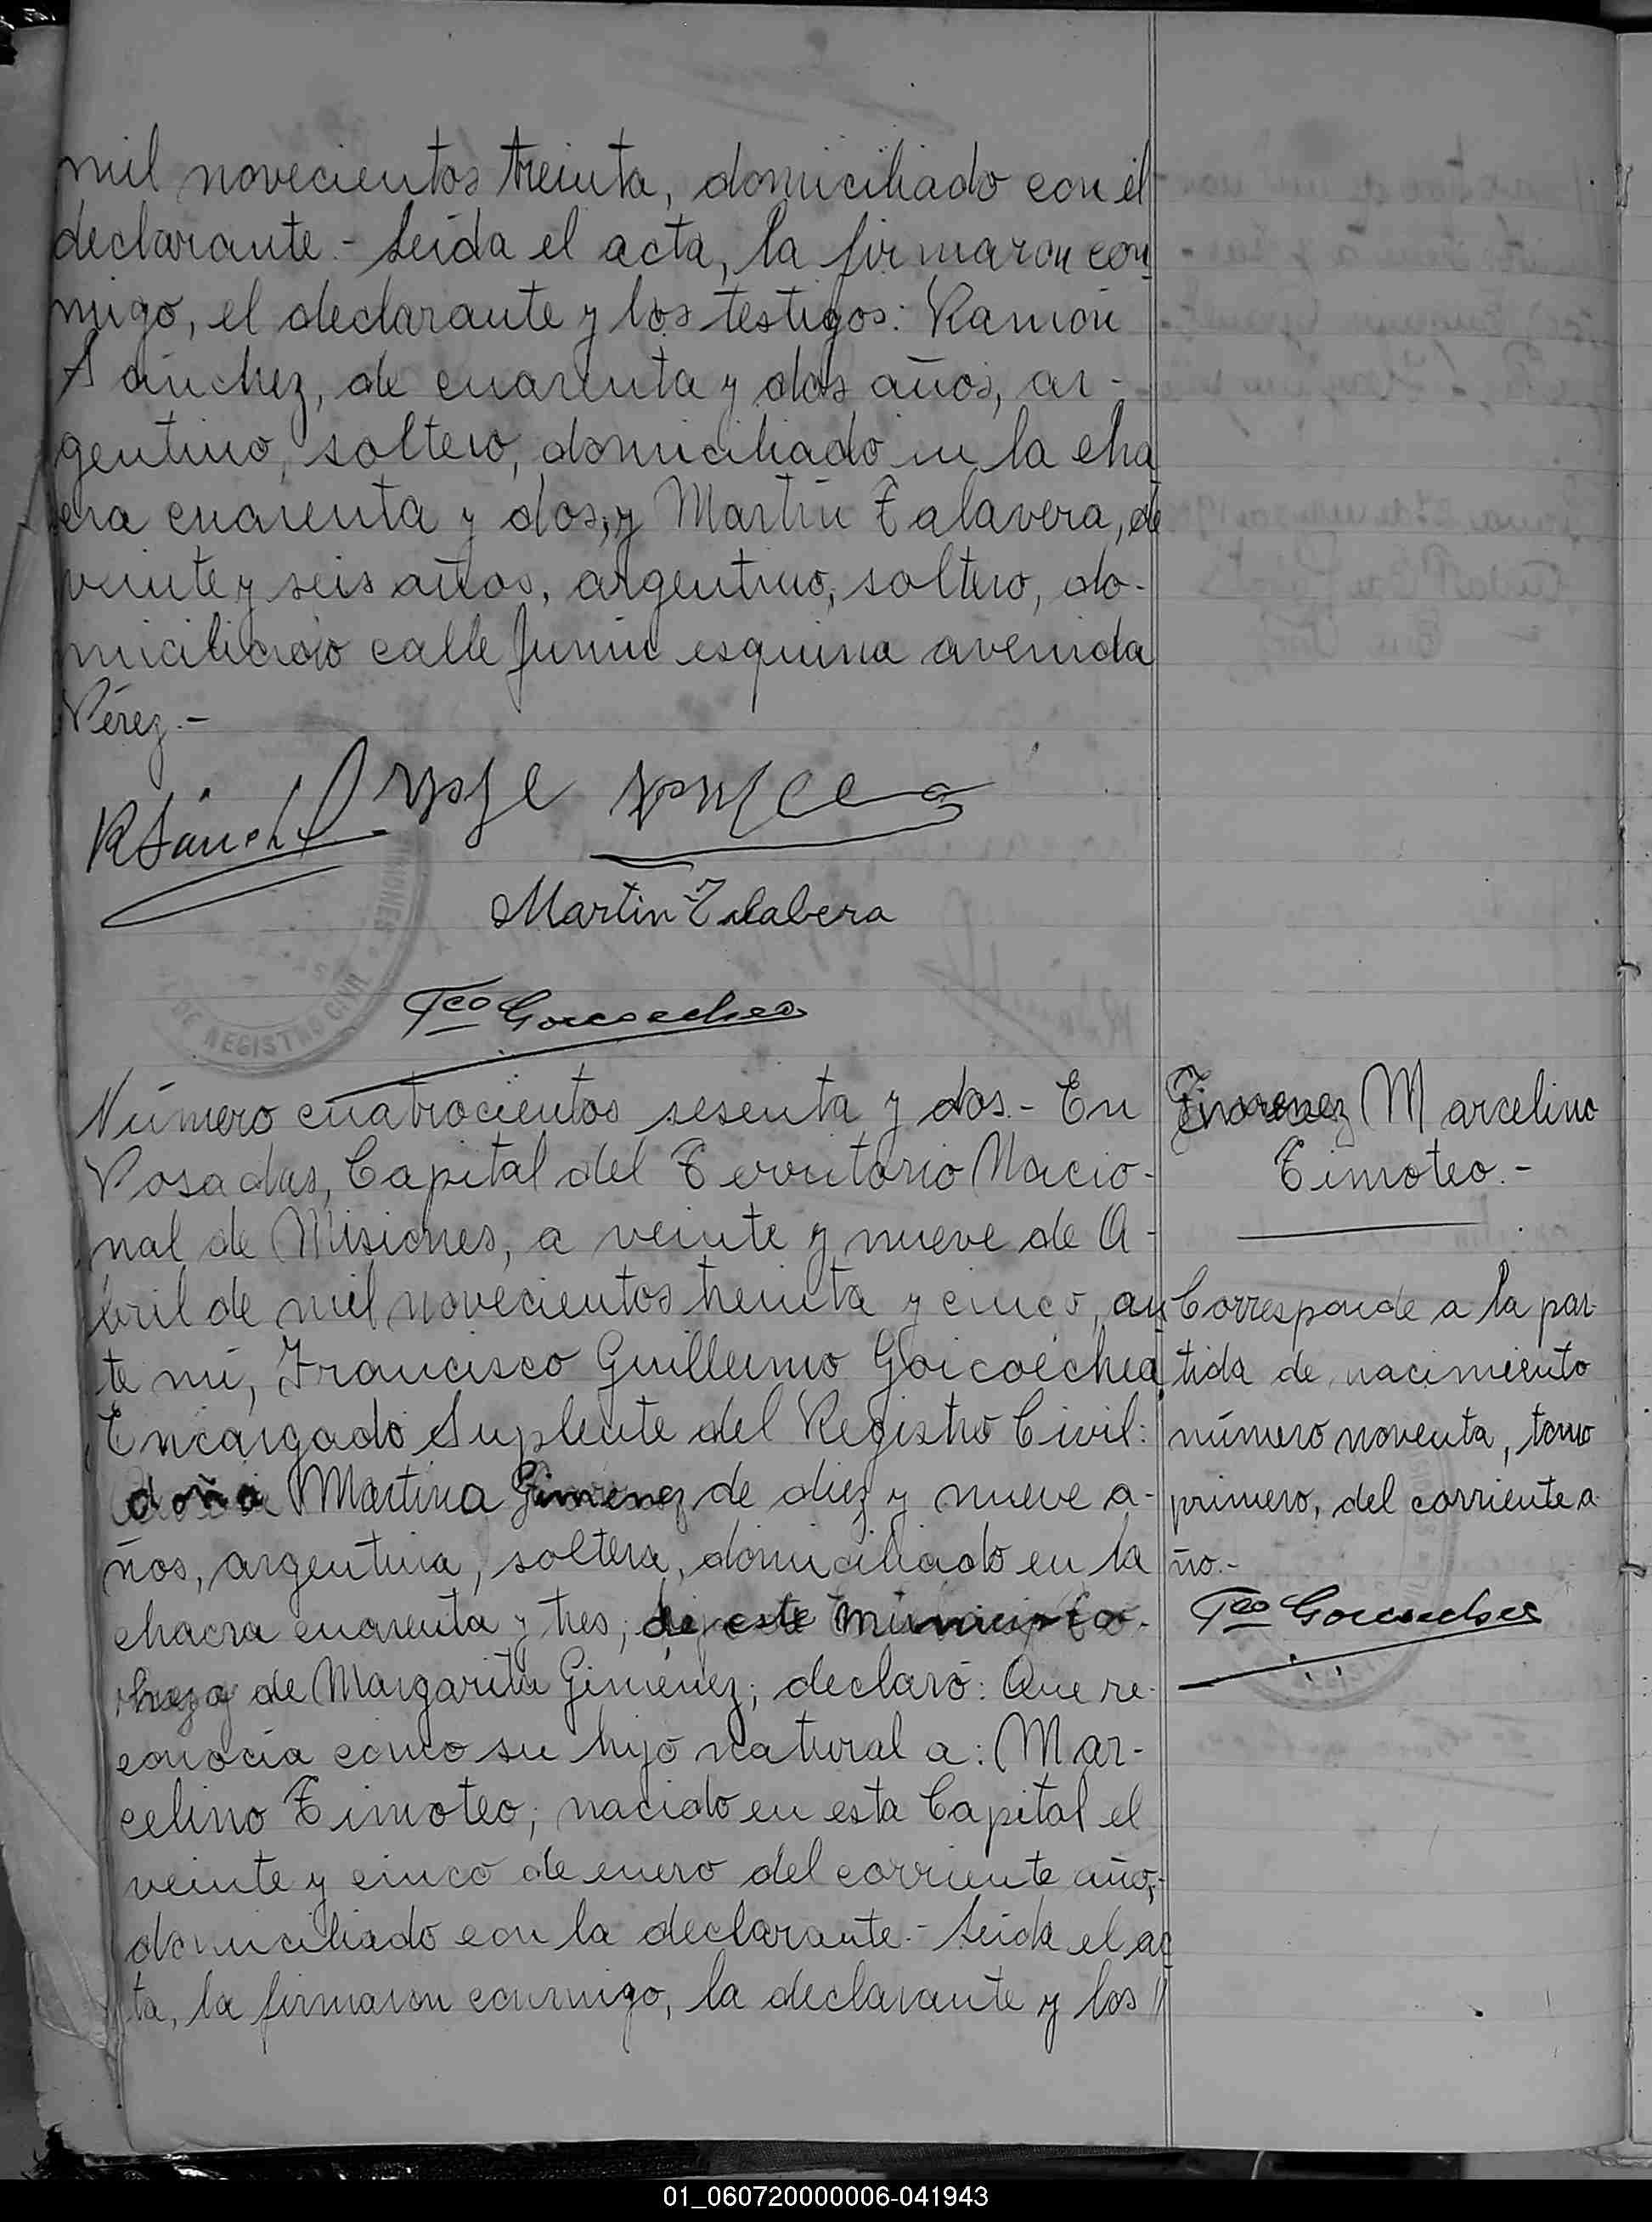 mil novecientos treinta, domiciliado con el
declarante.- Leída el acta, la firmaron con
migo, el declarante y los testigos: Ramón
Sánchez, de cuarenta y dos años, ar-
gentino, soltero, domiciliado en la cha
cra cuarenta y dos, y Martín Talavera, de
veinte y seis años, argentino, soltero, do-
miciliado calle Junín esquina avenida
Pérez.-
RSánchez
Martin Talabera
Fco Goicoechea
Número cuatrocientos sesenta y dos.- En
Posadas, Capital del Territorio Nacio-
nal de Misiones, a veinte y nueve de A-
bril de mil novecientos treinta y cinco, an
te mí, Francisco Guillermo Goicoechea,
Encargado Suplente del Registro Civil:
doña Martina Gimenez de diez y nueve a-
ños, argentina, soltera, domiciliado en la
chacra cuarenta y tres, de este municipio-
hija de Margarita Giménez; declaró: Que re-
conocía como su hijo natural a: Mar-
celino Timoteo; nacido en esta Capital el
veinte y cinco de enero del corriente año,-
domiciliado con la declarante.- Leída el ac
ta, la firmaron conmigo, la declarante y los //
Gimenez Marcelino
Timoteo.-
Corresponde a la par-
tida de nacimiento
número noventa, tomo
primero, del corriente a-
ño.-
Fco Goicoechea
DE REGISTRO CIVIL
MISIONES
01_060720000006-041943